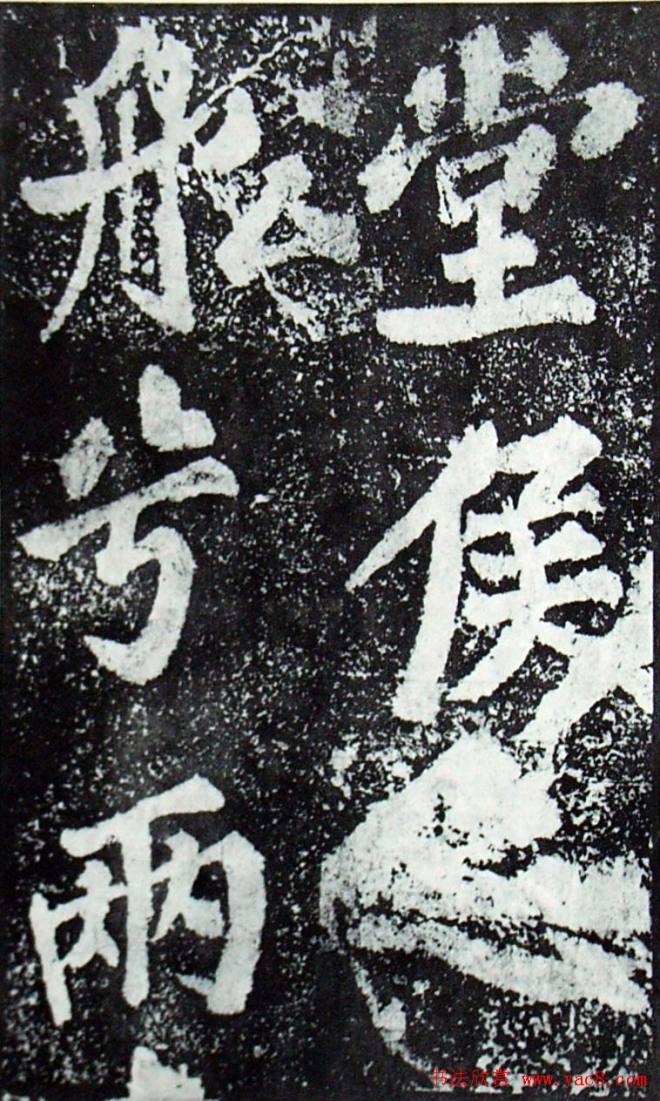 堂侯之
舩兮兩
书法欣赏 www.yac8.com